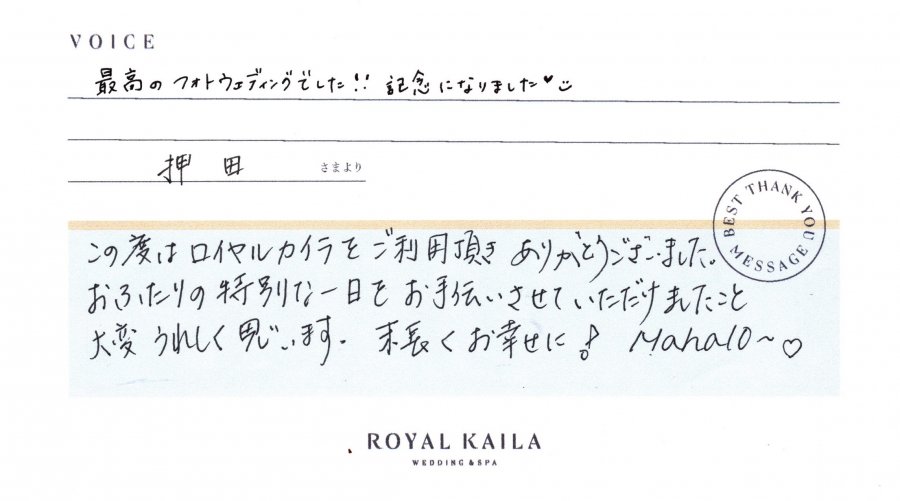 VOICE
最高のフォトウェディングでした!! 記念になりました♥
押田 さまより
BEST THANK YOU MESSAGE
この度はロイヤルカイラをご利用頂きありがとうございました。
おふたりの特別な一日をお手伝いさせていただけましたこと
大変うれしく思います。末長くお幸せに♪ Mahalo~♡
ROYAL KAILA
WEDDING & SPA